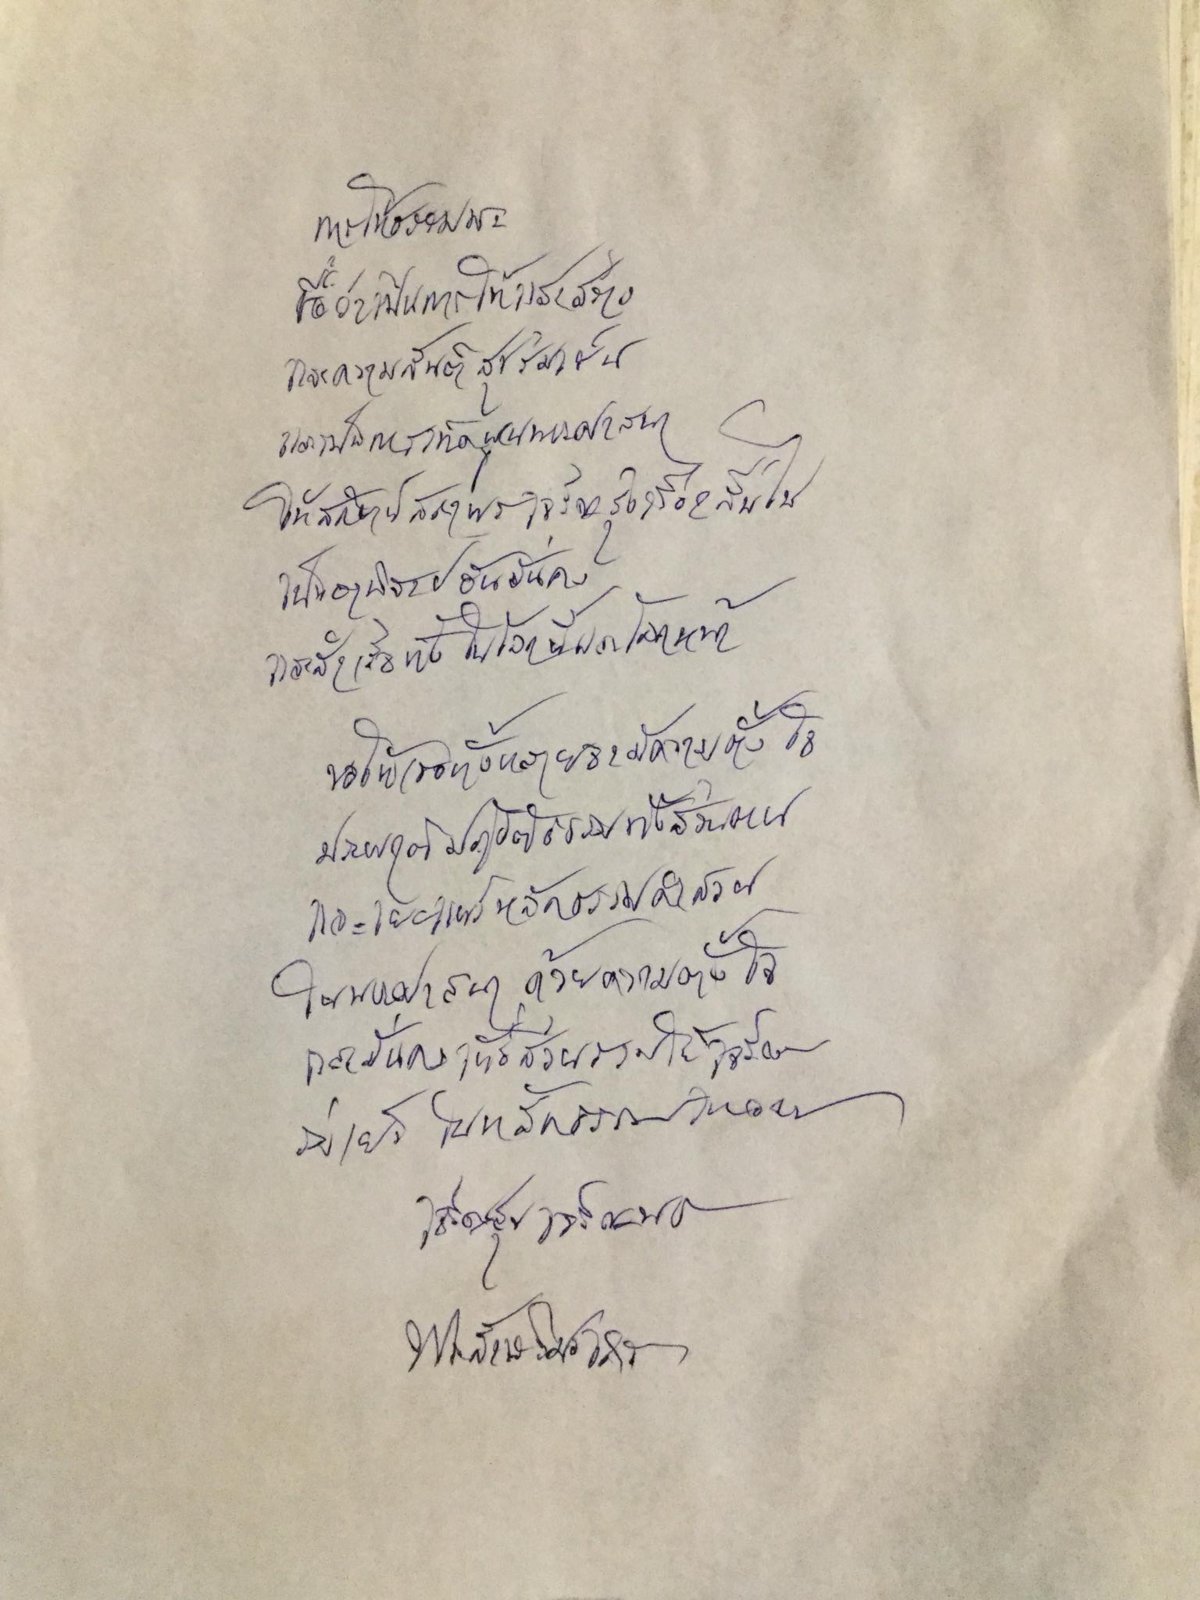 การให้ธรรมะ
ชื่อว่าเป็นการให้แสงสว่าง
และความสันติสุขร่มเย็น
และเป็นการเทิดทูนพระศาสนา
ให้สถิตย์สถาพรเจริญรุ่งเรืองสืบไป
เป็นอันมั่นคง
ทั้งในโลกนี้และโลกหน้า
ขอให้เธอทั้งหลายจงมีความตั้งใจ
ประพฤติปฏิบัติธรรมทั้งส่วนตน
และเผยแพร่หลักธรรมคำสอน
ในพระศาสนา ด้วยความตั้งใจ
และมั่นคง เพื่อส่วนรวมให้เจริญ
ร่มเย็น ในหลักธรรม
เจริญสุข เจริญพร